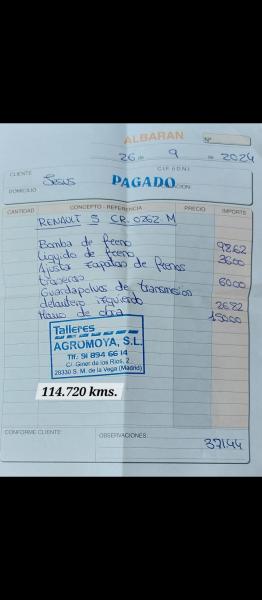 ALBARAN
Nº
26 de 9 de 2024
CLIENTE
C.I.F./D.N.I.
Jesus
PAGADO
DOMICILIO
CANTIDAD CONCEPTO - REFERENCIA PRECIO IMPORTE
RENAULT 5 CR.0762 M
Bomba de freno 9862
Liquido de freno 3600
Ajustar zapatas de frenos
traseras 6000
Guardapolvos de transmision
delantero izquierdo 2682
Mano de obra 15000
Talleres
AGROMOYA, S.L.
Tlf: 91 894 66 14
C/. Giner de los Rios, 2
28330 S. M. de la Vega (Madrid)
114.720 kms.
CONFORME CLIENTE:
OBSERVACIONES:
371.44